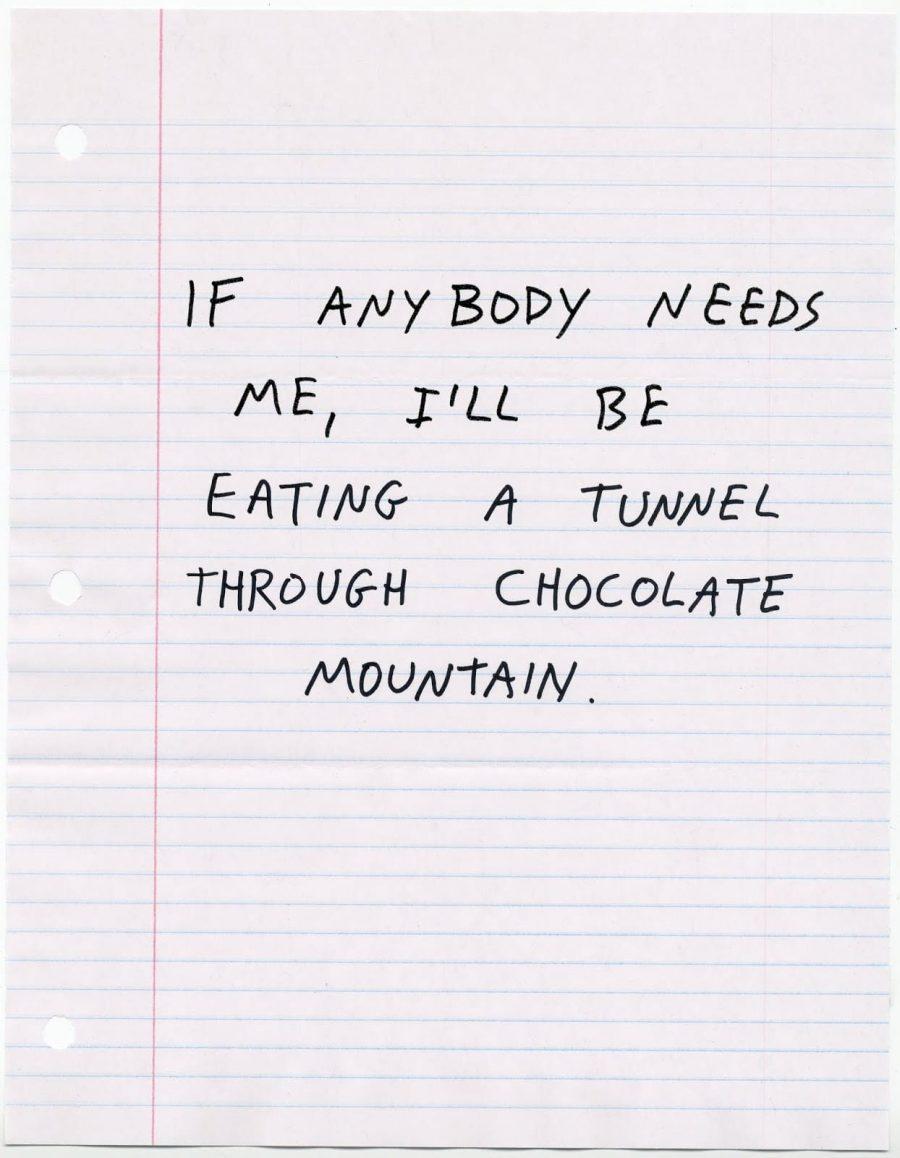 IF ANYBODY NEEDS
ME, I'LL BE
EATING A TUNNEL
THROUGH CHOCOLATE
MOUNTAIN.